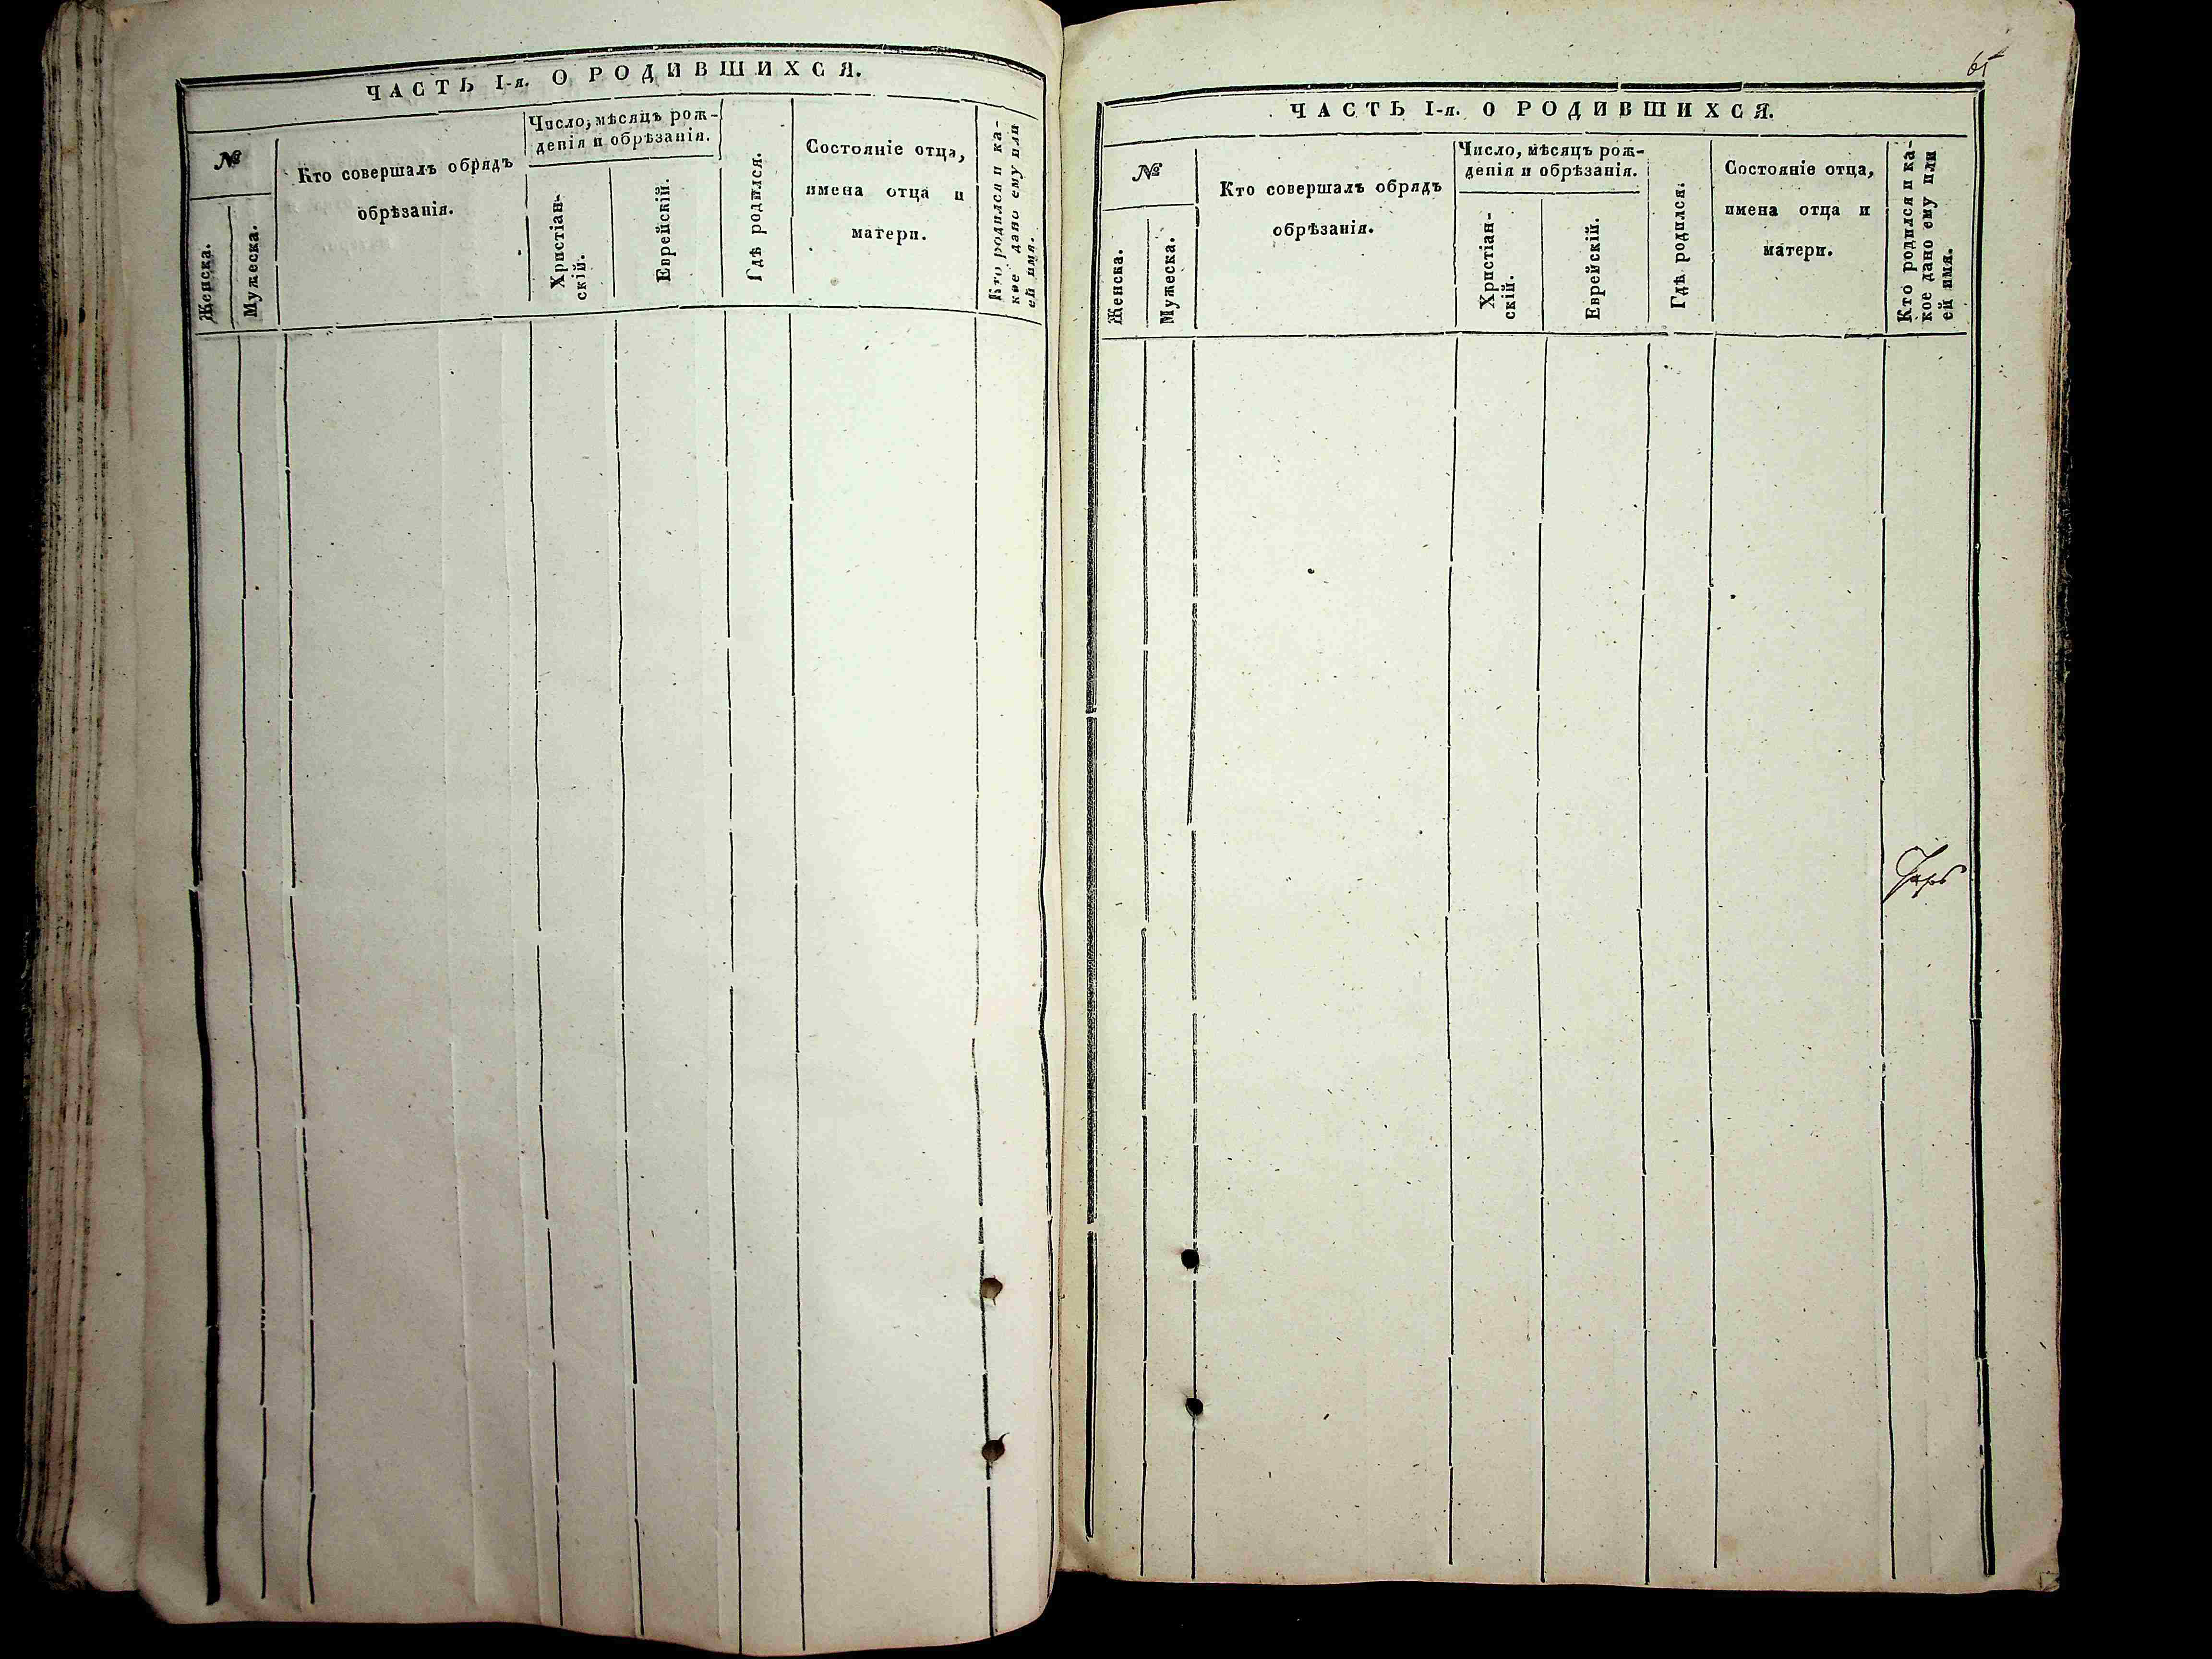 ЧАСТЬ I-я. О РОДИВШИХСЯ.
№
Женска.
Мужеска.
Кто совершалъ обрядъ
обрѣзанія.
Число, мѣсяцъ рож-
денія и обрѣзанія.
Христіан-
скій.
Еврейскій.
Гдѣ родился.
Состояніе отца,
имена отца и
матери.
Кто родился и ка-
кое дано ему или
ей имя.
65
ЧАСТЬ I-я. О РОДИВШИХСЯ.
№
Женска.
Мужеска.
Кто совершалъ обрядъ
обрѣзанія.
Число, мѣсяцъ рож-
денія и обрѣзанія.
Христіан-
скій.
Еврейскій.
Гдѣ родился.
Состояніе отца,
имена отца и
матери.
Кто родился и ка-
кое дано ему или
ей имя.